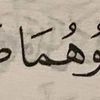 ُوهُمَا